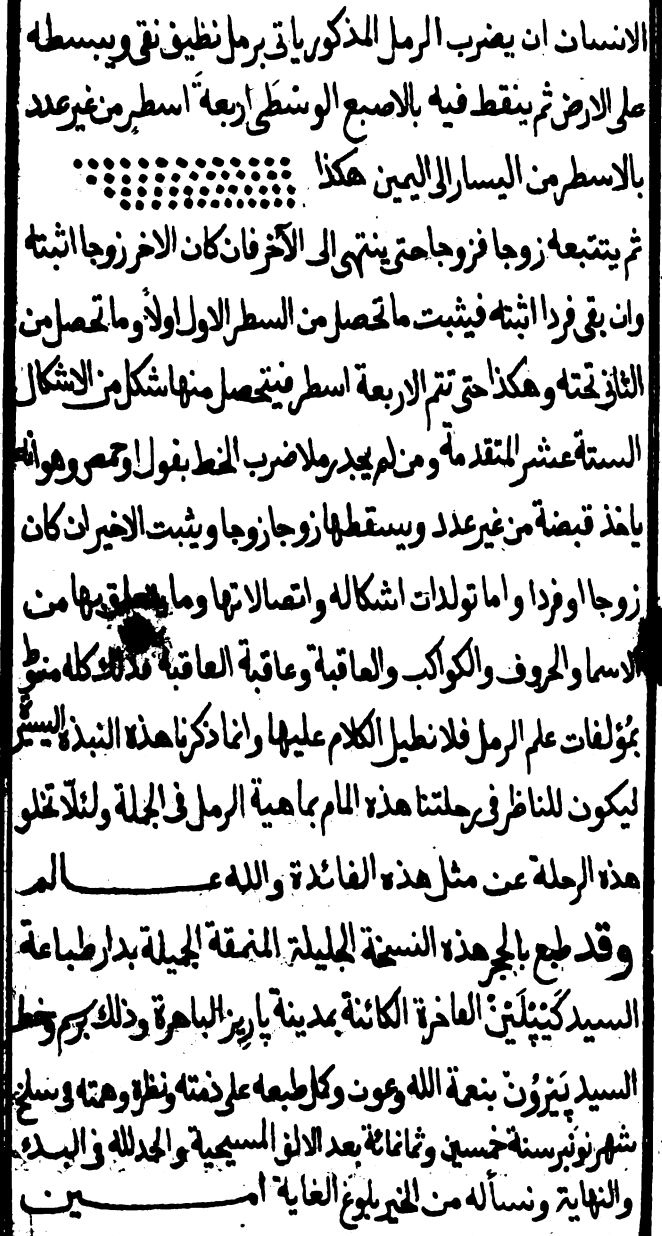 الانسان ان يضرب الرمل المذكور ياتى برمل نظيف نقى ويبسطه
على الارض ثم ينقط فيه بالاصبع الوسْطَى اربعةَ اسطرٍ من غير عدد
بالاسطر من اليسار الى اليمين هكذا
ثم يتتبعه زوجا فزوجا حتى ينتهى الى الآخر فان كان الاخر زوجا اثبته
وان بقى فردا اثبته فيثبت ما تحصل من السطر الاول اولاً وما تحصل من
الثانى تحته وهكذا حتى تتم الاربعة اسطر فيتحصل منها شكل من الاشكال
الستة عشر المتقدمة ومن لم يجد رملا ضرب الخط بفول او حمص وهو انه
ياخذ قبضة من غير عدد ويسقطها زوجا زوجا ويثبت الاخير ان كان
زوجا او فردا واما تولدات اشكاله واتصالاتها وما يتعلق بها من
الاسما والحروف والكواكب والعاقبة وعاقبة العاقبة فذلك كله منوط
بمُؤلفات علم الرمل فلا نطيل الكلام عليها وانما ذكرنا هذه النبذة اليسيرة
ليكون للناظر فى رحلتنا هذه المام بماهية الرمل فى الجملة ولئلّا تخلو
هذه الرحلة عن مثل هذه الفائدة والله عـــالم
وقد طبع بالحجر هذه النسخة الجليلة المنمقة الجميلة بدار طباعة
السيد كَيْپْلَيْنْ الفاخرة الكائنة بمدينة پاريز الباهرة وذلك برسم وخط
السيد پَيْرُونْ بنعمة الله وعون وكمل طبعه على ذمته ونظره وهمته فى سلخ
شهر نونبر سنة خمسين وثمانمائة بعد الالف المسيحية والحمد لله فى البدء
والنهاية ونسأله من الخير بلوغ الغاية امـــين